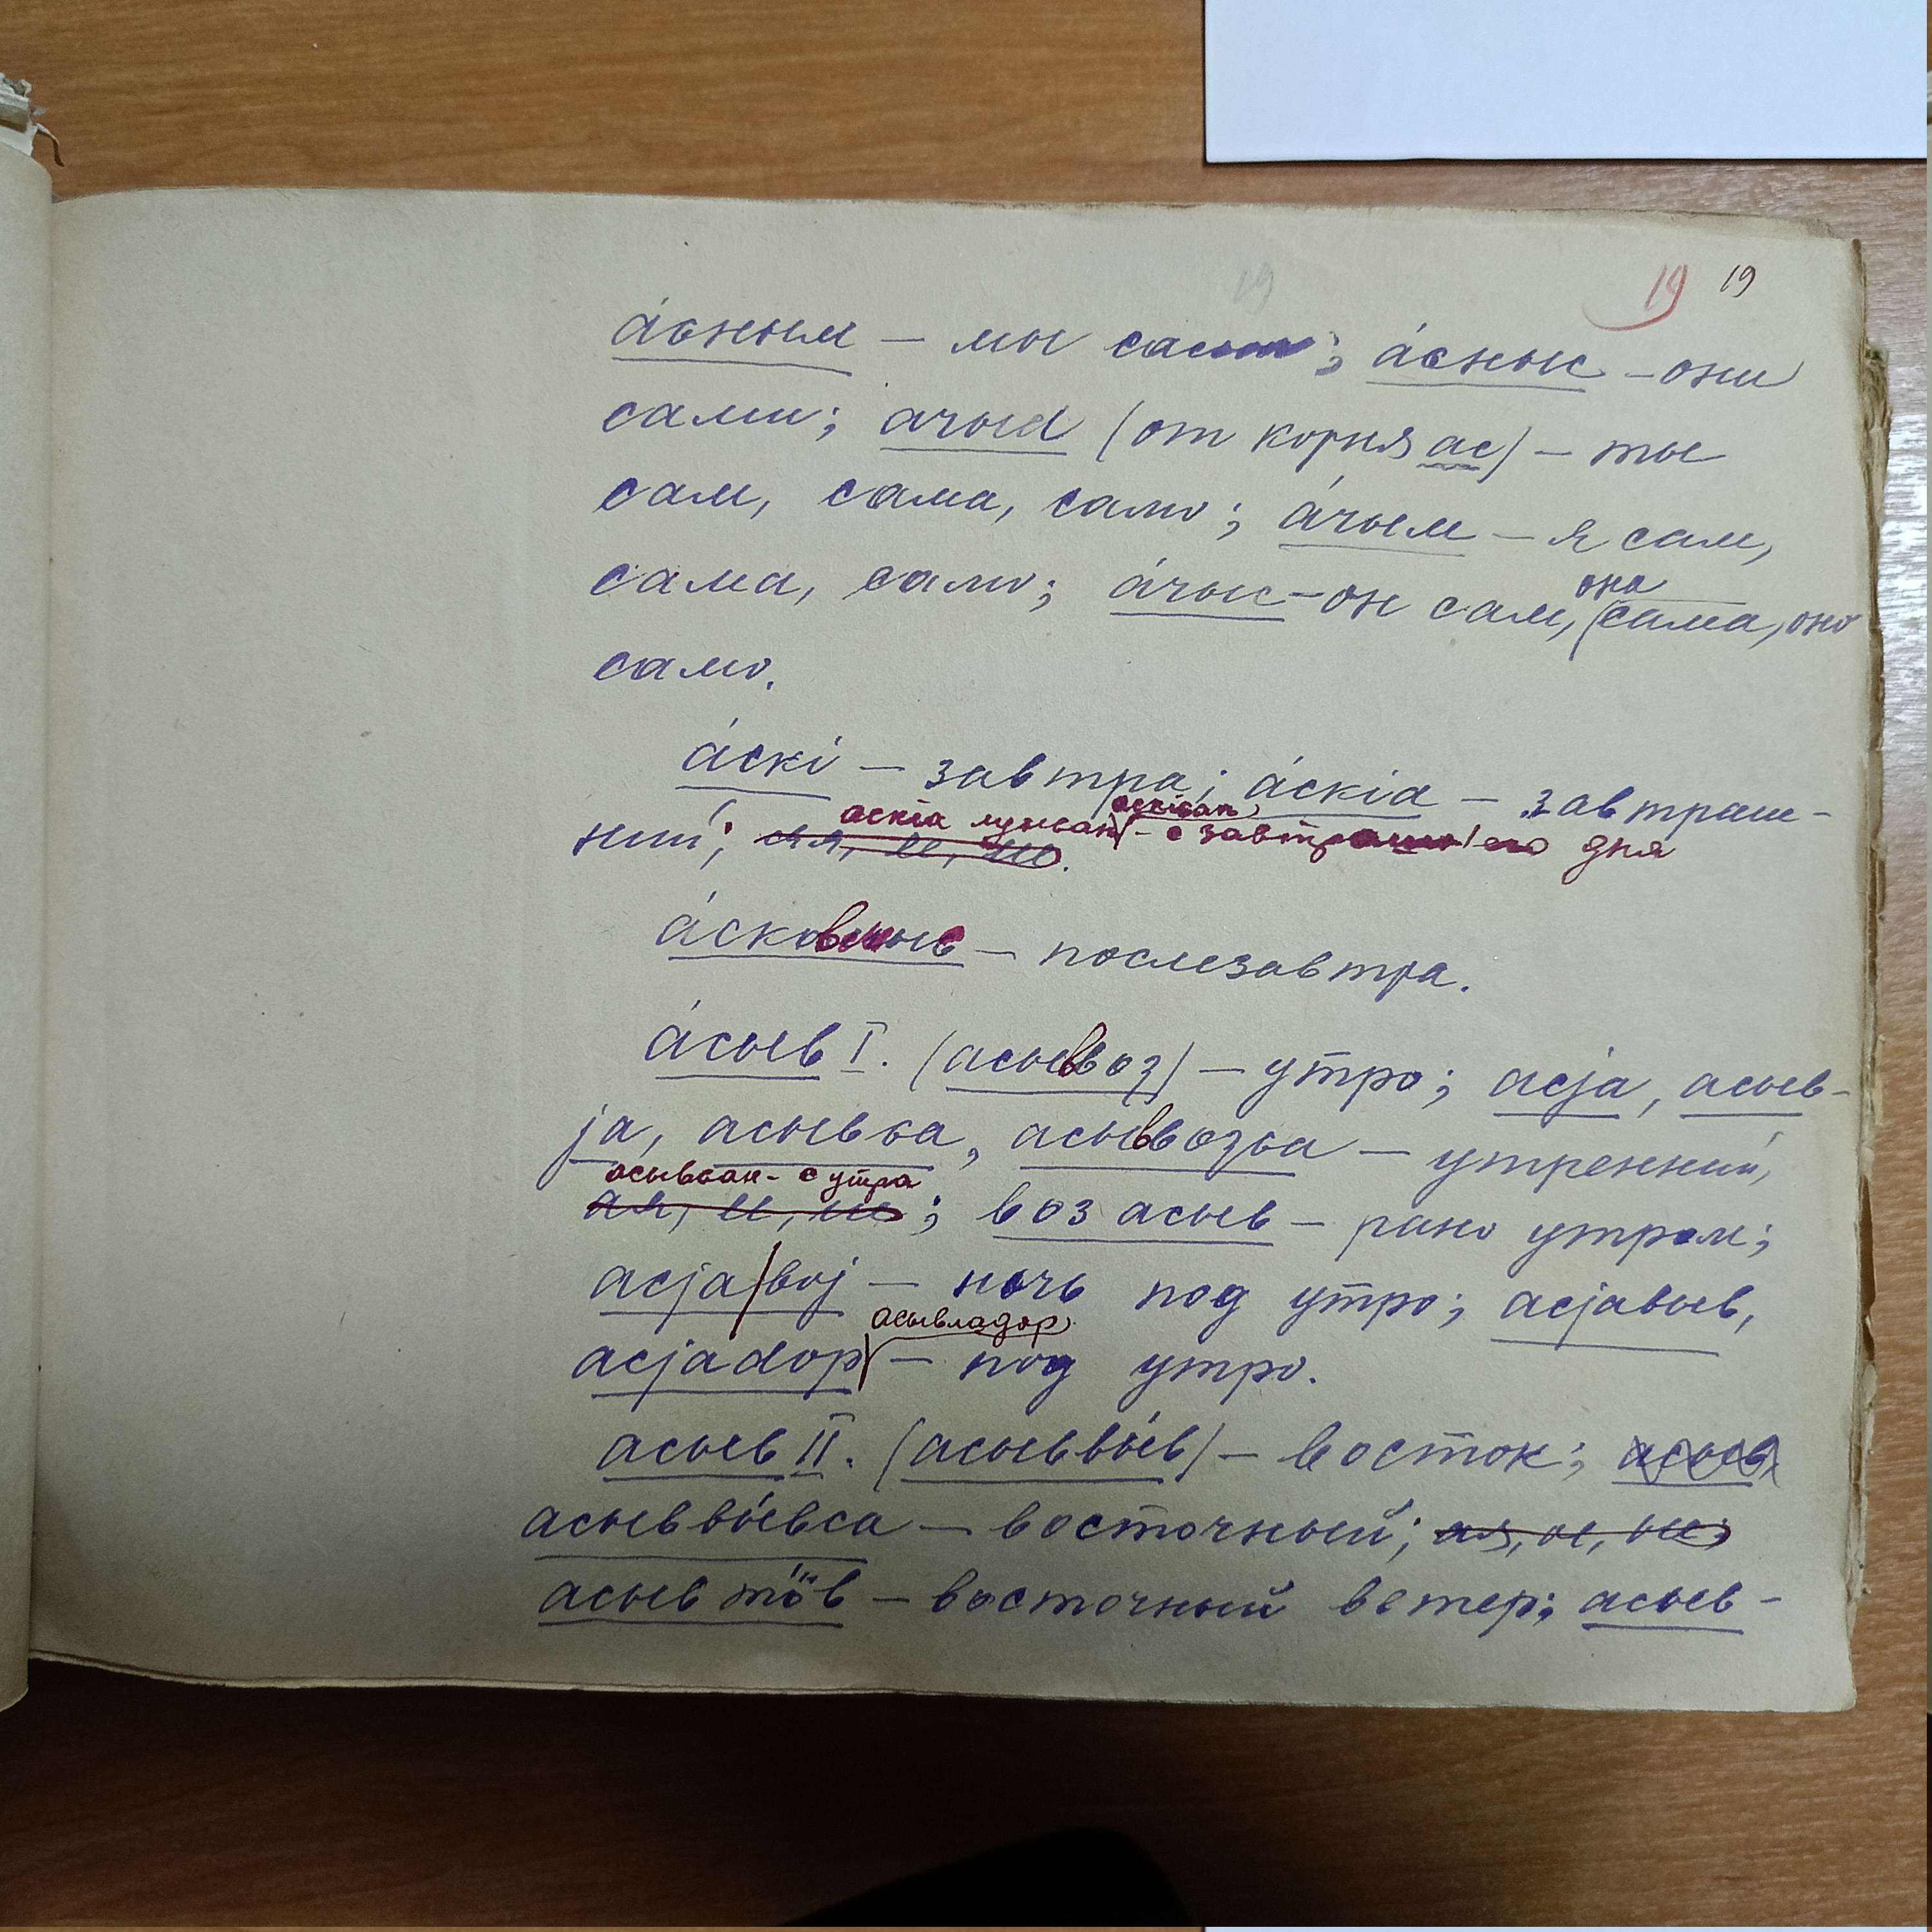 19 19 19
а́сным – мы сами; а́сныс – они
сами; ачыd (от корня ас) – ты
сам, сама, само; а́чым – я сам,
она
сама, само; а́чыс – он сам, сама, оно
само.
а́скі – завтра; а́скіа – завтраш-
аскісан,
аскіа лунсан – с завтрашнего дня
ний; яя, ее, ие.
– послезавтра.
а́сыв I. (асыввоз) – утро; асjа, асыв-
jа, асывса, асыввозса – утренний,
асывсан – с утра
ая, ее, ие; воз асыв – рано утром;
асjа воj – ночь под утро; асjавыв,
асывладор
асjаdор – под утро.
асыв II. (асыввы́в) – восток; асыв
асыввы́вса – восточный; ая, ое, ые;
асыв тӧв – восточный ветер; асыв-